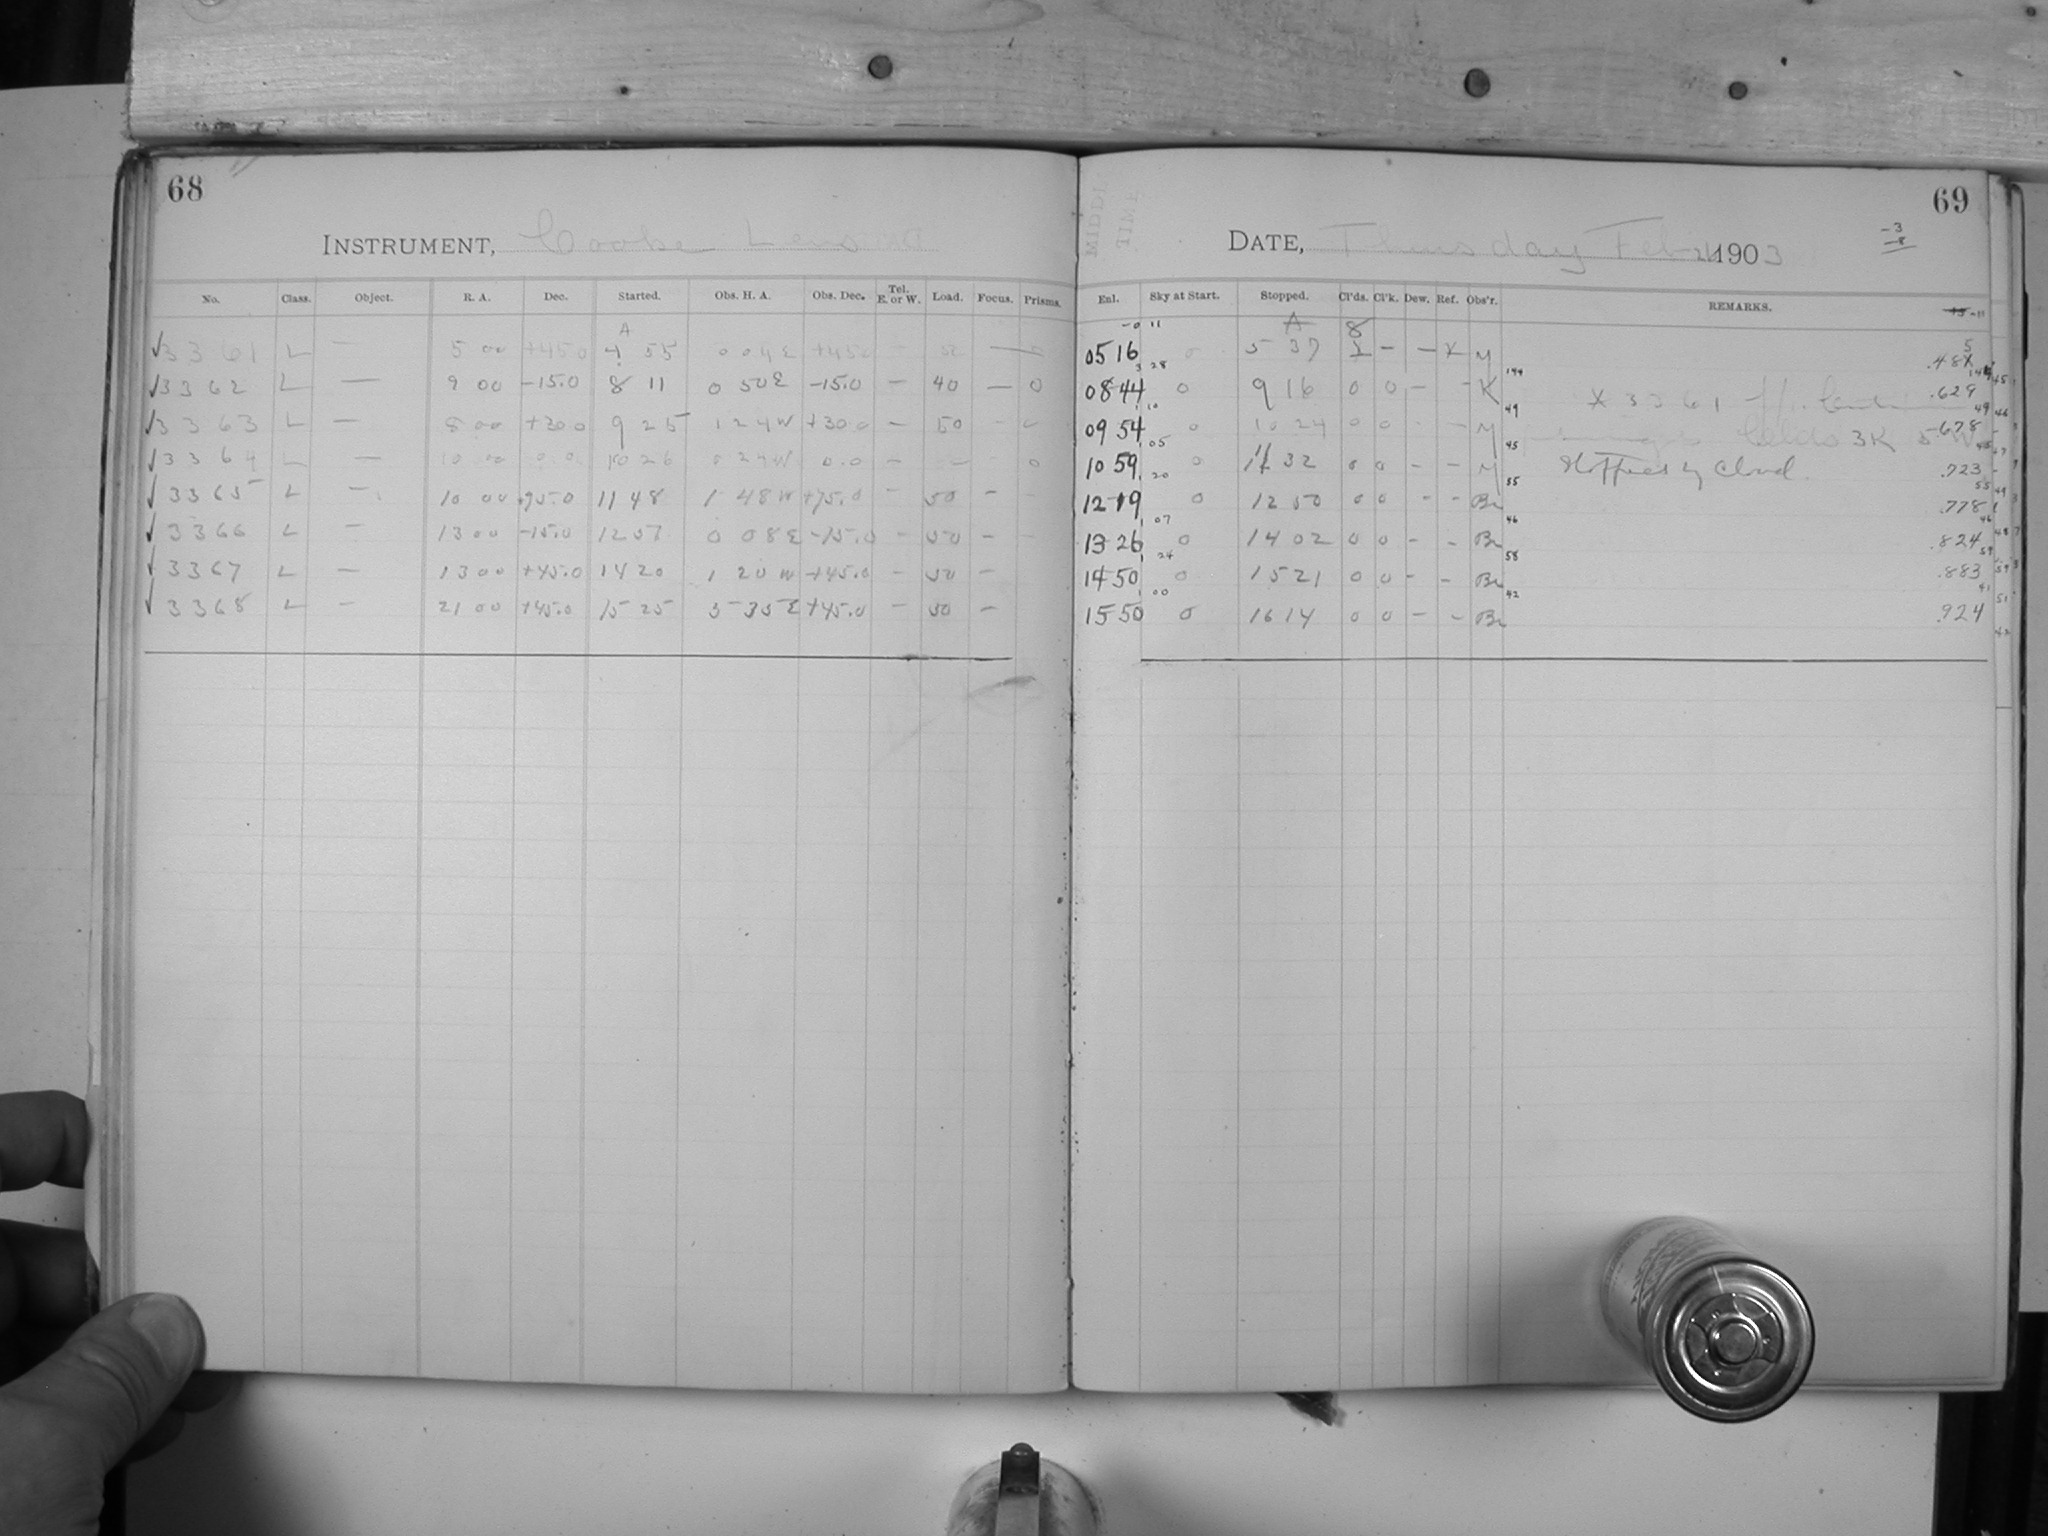 68
INSTRUMENT, Cooke Lens
No. Class. Object. R. A. Dec. Started. Obs. H. A. Obs. Dec. Tel. E. or W. Load. Focus. Prisms.
A
✓3361 L — 5 00 +45.0 4 55 0 04E +45.0 — 50 — 0
✓3362 L — 9 00 -15.0 8 11 0 50E -15.0 — 40 — 0
✓3363 L — 8 00 +30.0 9 25 1 24W +30.0 — 50 -
✓3364 L — 10 00 0.0 10 26 0 24W 0.0 — — 0
✓3365 L — 10 00 +75.0 11 48 1 48W +75.0 — 50 —
✓3366 L — 13 00 -15.0 12 57 0 08E -15.0 — 50 —
✓3367 L — 13 00 +45.0 14 20 1 20W +45.0 — 50 —
✓3368 L — 21 00 +45.0 15 25 5 35E +45.0 — 50 —
69
DATE, Thursday Feb 1903
-3
-8
Enl. Sky at Start. Stopped. Cl'ds. Cl'k. Dew. Ref. Obs'r. REMARKS.
-0 11 A 8 -11
05 16 0 5 37 — — X M 5
3 28 144 .48
08 44 0 9 16 0 0 — - K .629
1 10 49 X 3361 49
09 54 0 10 24 0 0 - - M .678
1 05 45 fields 3K 5 W
10 59 0 11 32 0 0 - - M Stopped by cloud. .723
1 20 55 55
12 19 0 12 50 0 0 - - Br .778
1 07 46 46
13 26 0 14 02 0 0 - - Br .824
1 24 58 59
14 50 0 15 21 0 0 - - Br .883
1 00 42 41
15 50 0 16 14 0 0 - - Br .924